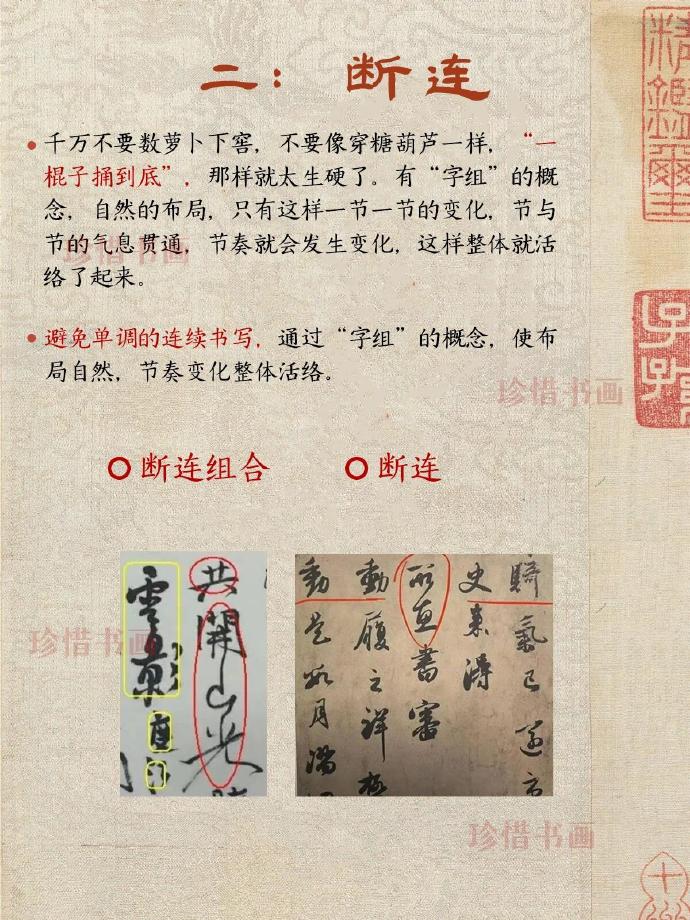 二： 断连
千万不要数萝卜下窖，不要像穿糖葫芦一样，“一
棍子捅到底”，那样就太生硬了。有“字组”的概
念，自然的布局，只有这样一节一节的变化，节与
节的气息贯通，节奏就会发生变化，这样整体就活
络了起来。
避免单调的连续书写，通过“字组”的概念，使布
局自然，节奏变化整体活络。
断连组合
断连
共開山光
雲影
騎氣已
史来濤
形直書審
動履之詳
動是如月滿
珍惜书画
珍惜书画
珍惜书画
珍惜书画